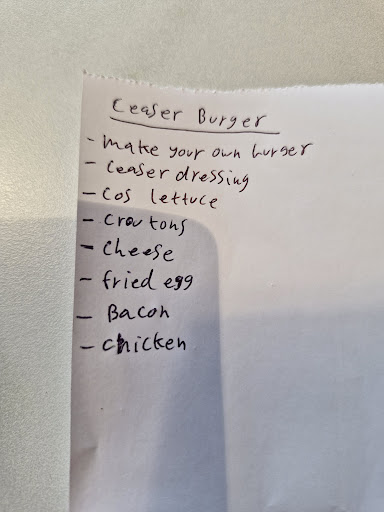 Ceaser Burger
- make your own burger
- Ceaser dressing
- Cos lettuce
- Croutons
- Cheese
- fried egg
- Bacon
- Chicken